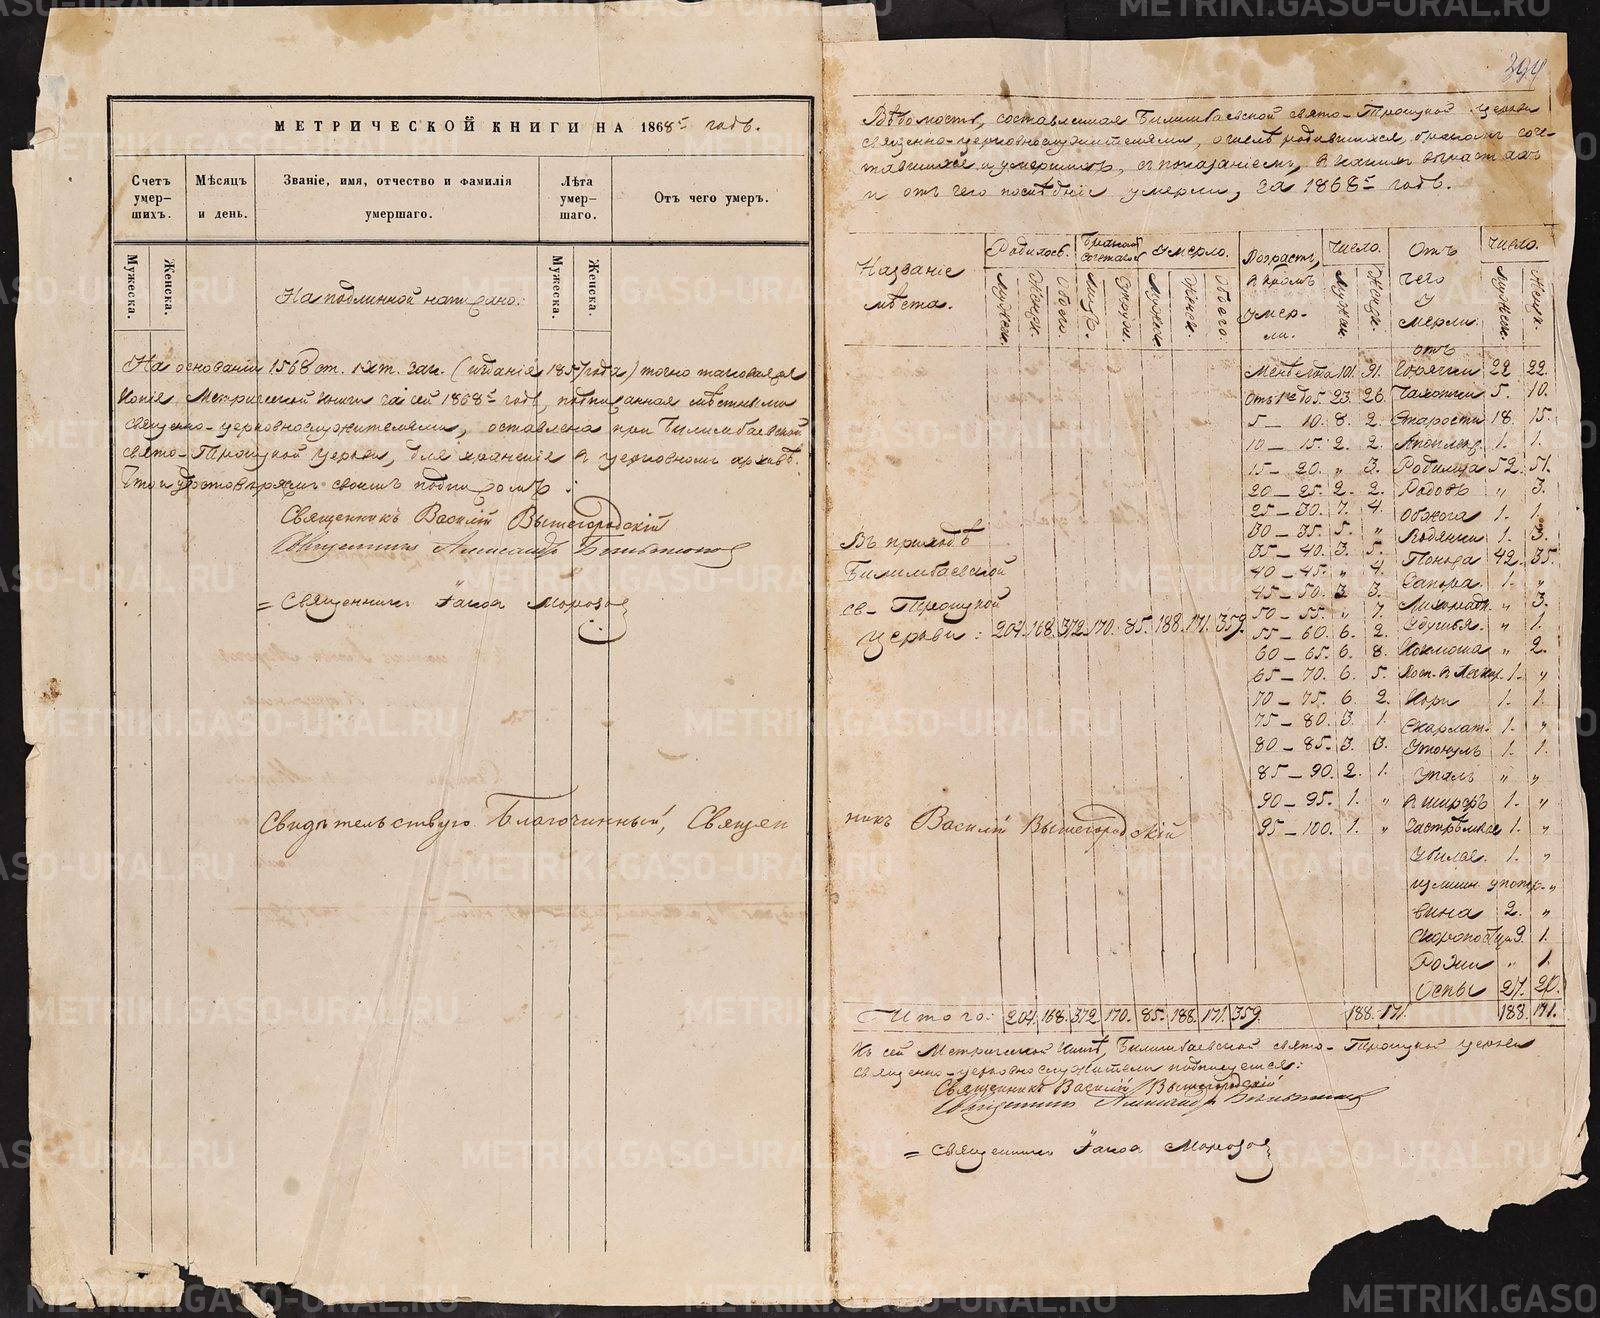 МЕТРИЧЕСКОЙ КНИГИ НА 1868й годъ.
Счетъ умер-шихъ.
Мѣсяцъ и день.
Званіе, имя, отчество и фамилія умершаго.
Лѣта умер-шаго.
Отъ чего умеръ.
Мужеска.
Женска.
Мужеска.
Женска.
На подлинной написано:
На основаніи 1568 ст. IX т. зак. (изданія 1857 года) точно таковая же
копія Метрической книги за сей 1868й годъ, подписанная мѣстными
священно-церковнослужителями, оставлена при Билимбаевской
свято-Троицкой церкви, для храненія въ церковномъ архивѣ.
Что и удостовѣряемъ своимъ подписомъ.
Священникъ Василій Вышегородскій
Священникъ Александръ
= Священникъ Іаковъ Морозовъ
Свидѣтельствую Благочинный, Священ
394
Вѣдомость, составленная Билимбаевской свято-Троицкой церкви
священно-церковнослужителями, о числѣ родившихся, бракомъ соче-
тавшихся и умершихъ, съ показаніемъ, въ какихъ возрастахъ
и отъ чего послѣдніе умерли, за 1868й годъ.
Названіе мѣста.
Родилось.
Бракомъ сочеталось
Умерло.
Возрастъ, въ коемъ умер-ли.
Число.
Отъ чего умерли
Число.
Мужск. Женск. Обоего. Мужск. Женск. Обоего. Мужск. Женск. Мужск. Женск.
отъ
Менѣ года 101. 91. Горячки 22 22.
Отъ 1го до 5. 23. 26. Чахотки 5. 10.
5 — 10. 8. 2. Старости 18. 15.
10 — 15. 2. 2. 1. 1.
15 — 20. „ 3. Родимца 52. 51.
20 — 25. 2. 2. Родовъ „ 3.
25 — 30. 7. 4. Обжога 1. 1.
30 — 35. 5. „ Водянки 1. 3.
35 — 40. 3. 5. Поноса 42. 35.
40 — 45. „ 4. Запора. 1. „
45 — 50. 3 3. „ 3.
50 — 55. „ 7. Удушья. „ 1.
55 — 60. 6. 2. Коклюша „ 2.
60 — 65. 6. 8. 1. „
65 — 70. 6. 5. Кори 1. 1.
70 — 75. 6 2. Скарлат. 1. „
75 — 80. 3. 1. Утонулъ 1. 1.
80 — 85. 3. 3. „ „
85 — 90. 2. 1. 1. „
90 — 95. 1. „ 1. „
95 — 100. 1. „ 1. „
вина 2. „
9. 1.
Рожи „ 1.
Оспы 27. 20.
Въ приходѣ
Билимбаевской
св-Троицкой
церкви: 204. 168. 372. 170. 85. 188. 171. 359.
никъ Василій Вышегородскій
Итого: 204. 168. 372 170. 85. 188. 171. 359. 188. 171. 188. 171.
Къ сей Метрической книгѣ, Билимбаевской свято-Троицкой церкви
священно-церковнослужители подписуемся:
Священникъ Василій Вышегородскій
Священникъ Александръ
= Священникъ Іаковъ Морозовъ
METRIKI.GASO-URAL.RU